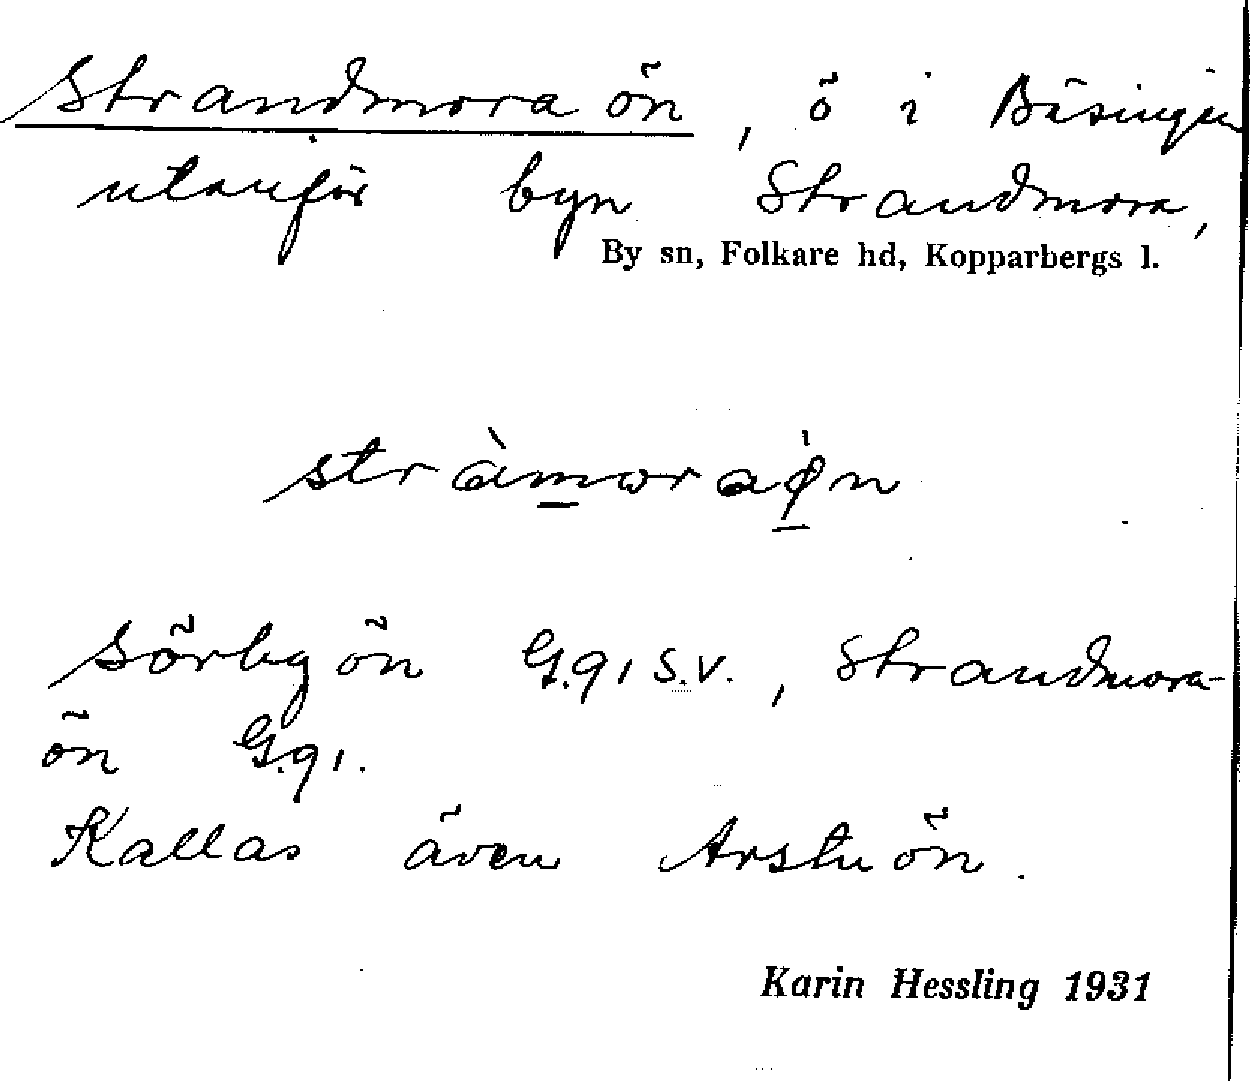 Strandmoraön, ö i Bäsingen
utanför byn Strandmora,
By sn, Folkare hd, Kopparbergs l.
stràmoraø̀n
Sörbyön G.91 S.V., Strandmora-
ön G.91.
Kallas även Arstuön.
Karin Hessling 1931